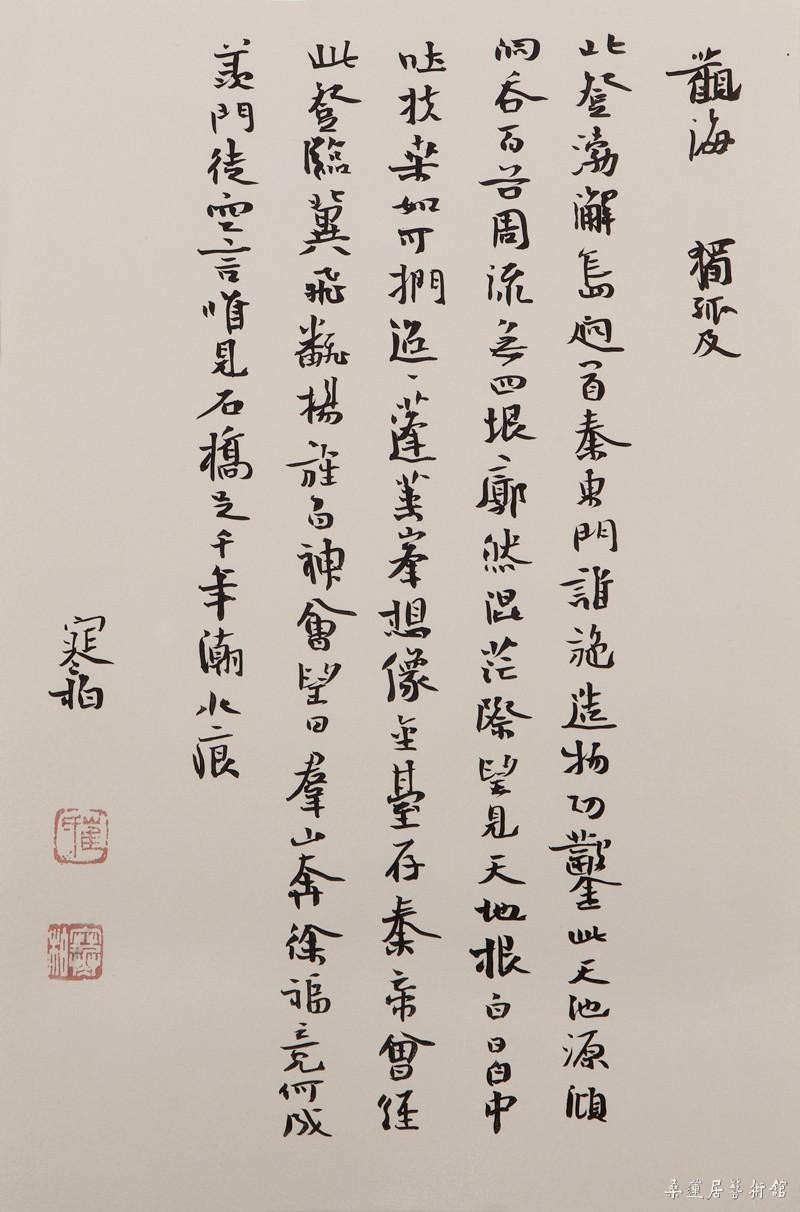 觀海 獨孤及
北登渤澥島迴首秦東門誰施造物功鑿此天池源澒
洞吞百谷周流無四垠廓然混茫際望見天地根白日自中
吐扶桑如可捫迢、蓬萊峯想像金臺存秦帝曾經
此登臨冀飛飜揚旌百神會望日羣山奔徐福竟何成
羨門徒空言唯見石橋足千年潮水痕
寒柏
寒柏
桑蓮居藝術館